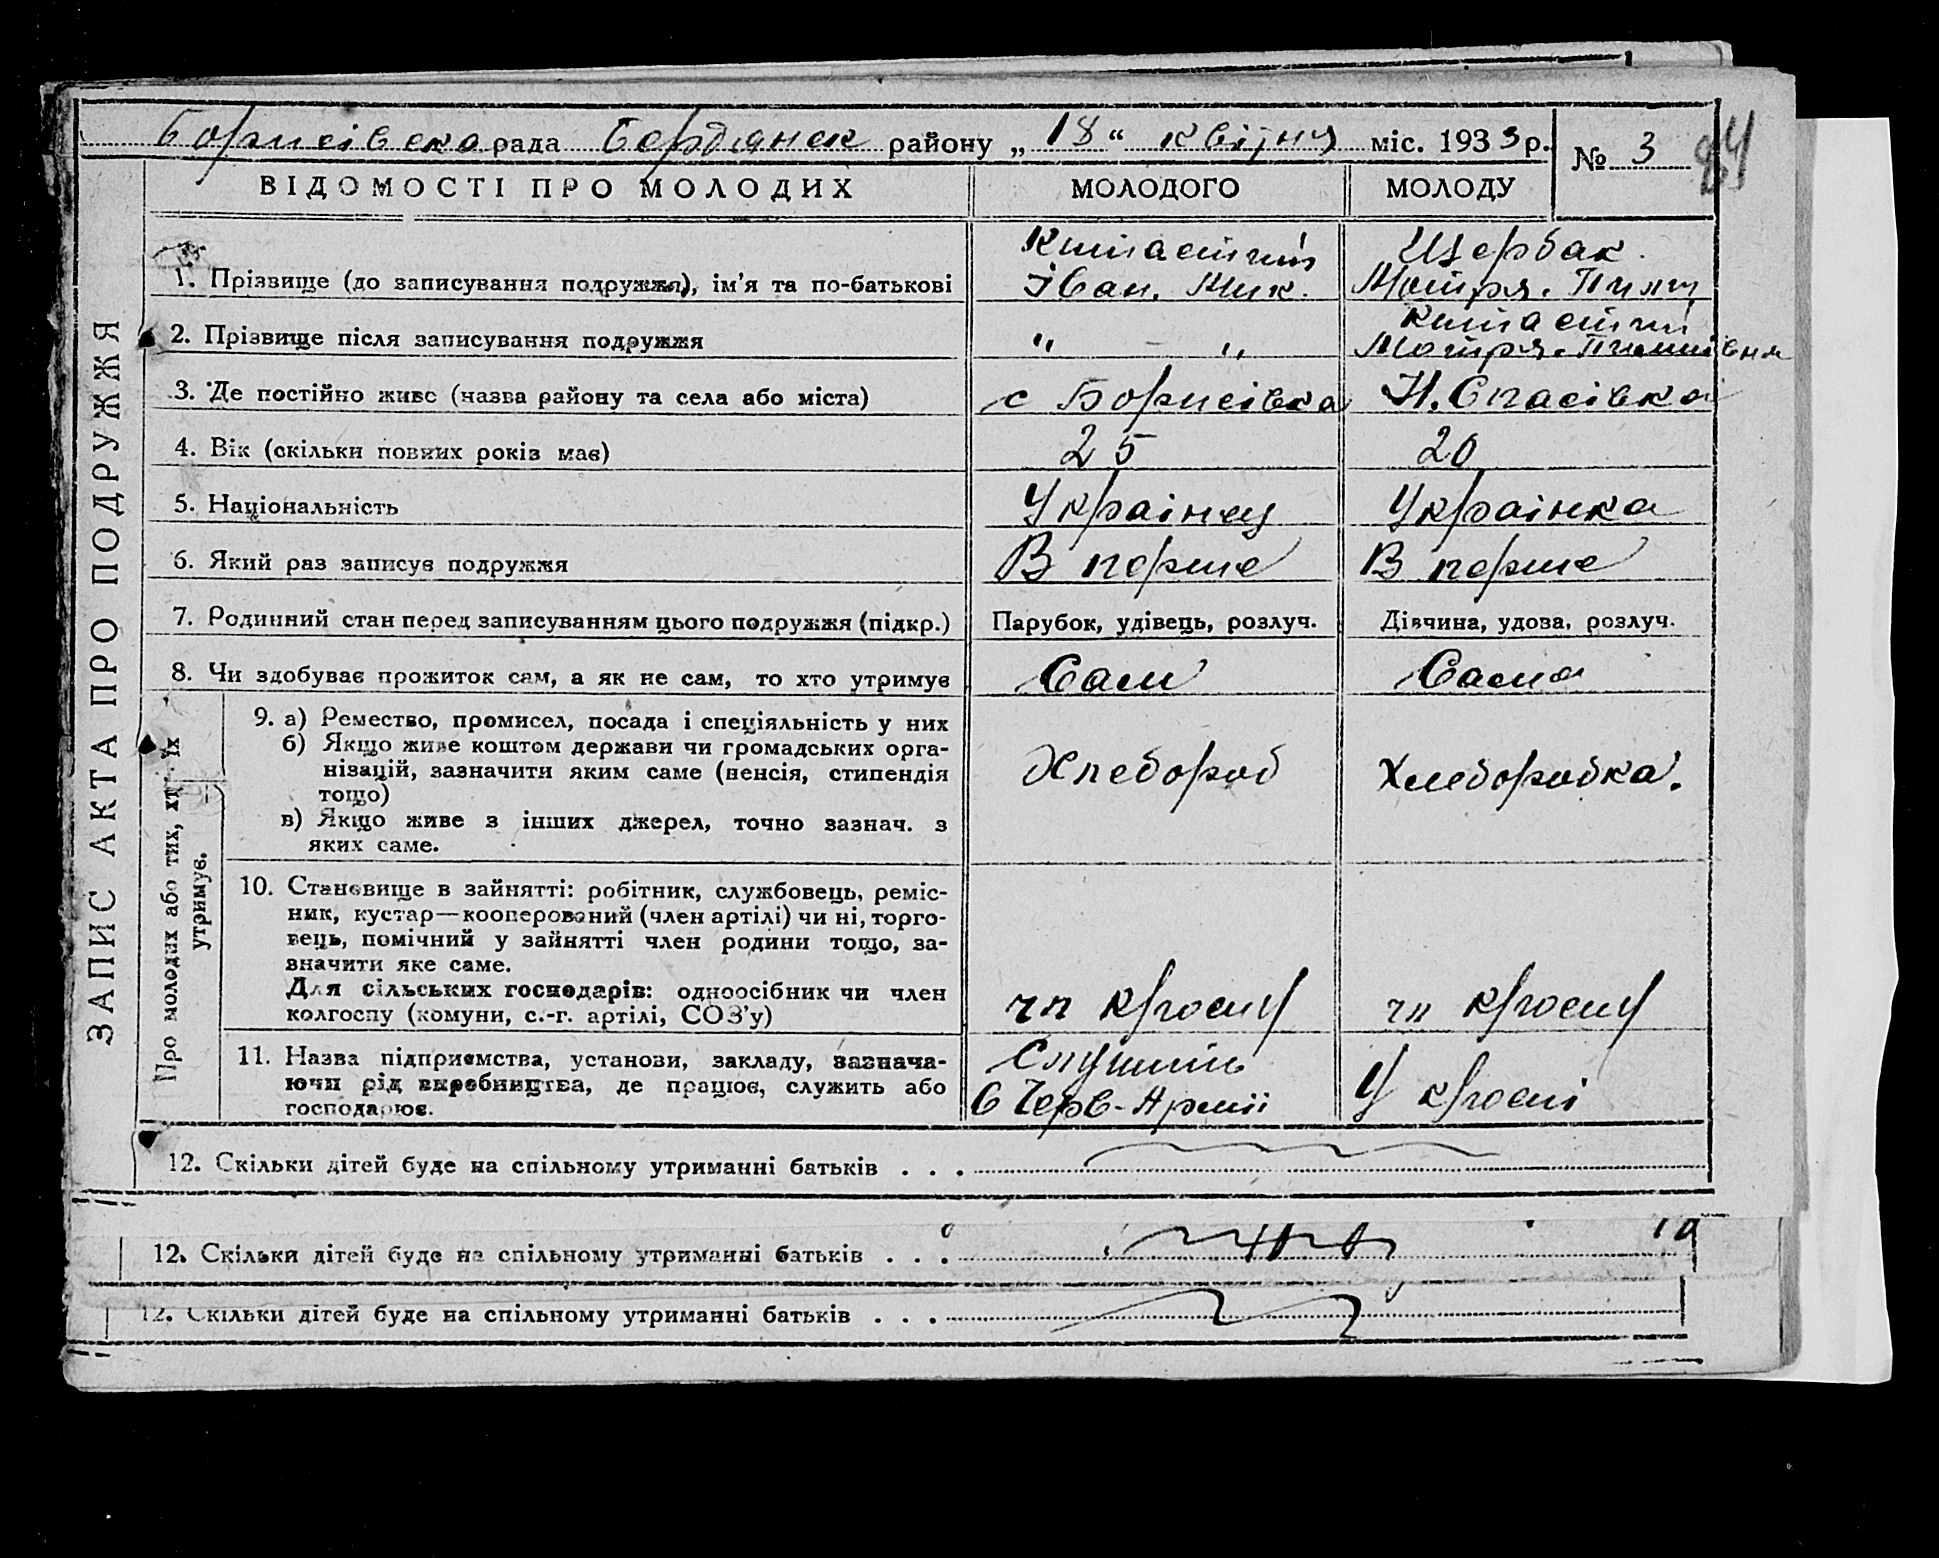 Борисівська рада Бердянськ району „18“ квітня міс. 1933 р.
№ 3
84
ЗАПИС АКТА ПРО ПОДРУЖЖЯ
ВІДОМОСТІ ПРО МОЛОДИХ МОЛОДОГО МОЛОДУ
Щербак
1. Прізвище (до записування подружжя), ім'я та по-батькові Іван. Мик. Мотря.
2. Прізвище після записування подружжя " — " Мотря.
3. Де постійно живе (назва району та села або міста) с Борисівка Н. Спасівка
4. Вік (скільки повних років має) 25 20
5. Національність Украінец Украінка
6. Який раз записує подружжя В перше В перше
7. Родинний стан перед записуванням цього подружжя (підкр.) Парубок, удівець, розлуч. Дівчина, удова, розлуч.
8. Чи здобуває прожиток сам, а як не сам, то хто утримує Сам Сама
Про молодих або тих, хто їх
утримує.
9. а) Ремество, промисел, посада і спеціяльність у них
б) Якщо живе коштом держави чи громадських орга-
нізацій, зазначити яким саме (пенсія, стипендія
тощо)
в) Якщо живе з інших джерел, точно зазнач. з
яких саме.
Хлебороб Хлеборобка.
10. Становище в зайнятті: робітник, службовець, реміс-
ник, кустар—кооперований (член артілі) чи ні, торго-
вець, помічний у зайнятті член родини тощо, за-
значити яке саме.
Для сільських господарів: одноосібник чи член
колгоспу (комуни, с.-г. артілі, СОЗ'у)
чл чл
11. Назва підприємства, установи, закладу, зазнача-
ючи рід виребництва, де працює, служить або
господарює.
в Черв-Арміі
У
12. Скільки дітей буде на спільному утриманні батьків . . .
12. Скільки дітей буде на спільному утриманні батьків . . .
12. Скільки дітей буде на спільному утриманні батьків . . .